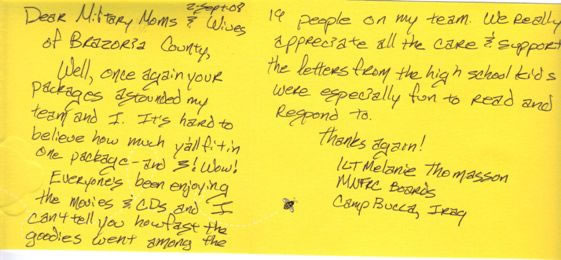 2 Sept 08
Dear Military Moms & Wives
of Brazoria County,
Well, once again your
packages astounded my
team and I. It's hard to
believe how much y'all fit in
one package - and 3! Wow!
Everyone's been enjoying
the movies & CDs and I
can't tell you how fast the
goodies went among the
19 people on my team. We Really
appreciate all the care & support
the letters from the high school kids
were especially fun to read and
Respond to.
Thanks again!
1LT Melanie Thomasson
MNFRC Boards
Camp Bucca, Iraq